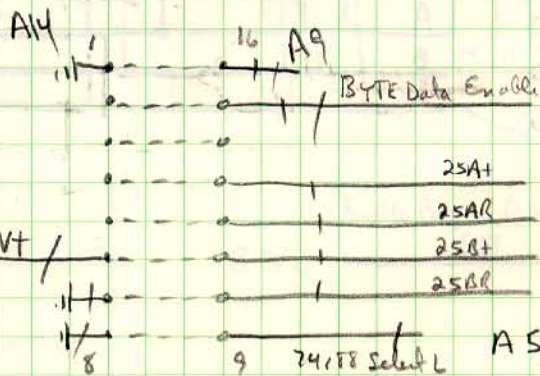 A14
1 16 A9
BYTE Data Enabl
25A+
25AR
V+ 25B+
25BR
8 9 74/88 Select L A5